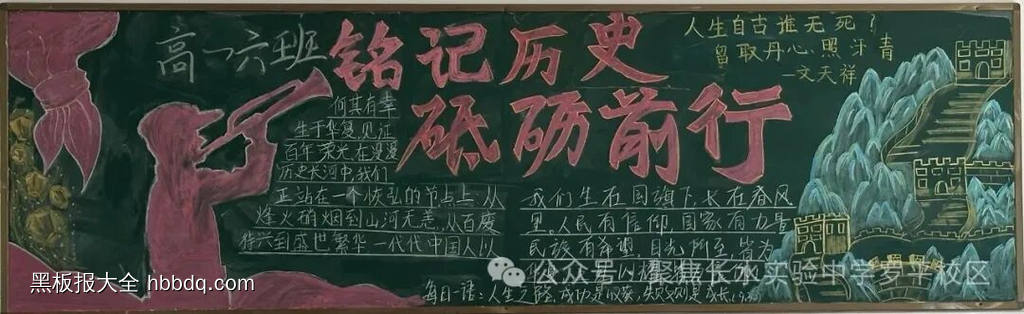 高一六班
铭记历史
砥砺前行
人生自古谁无死？
留取丹心照汗青
—文天祥
何其有幸
生于华夏，见证
百年荣光，在漫漫
历史长河中，我们
正站在一个恢弘的节点上，从
烽火硝烟到山河无恙，从百废
待兴到盛世繁华，一代代中国人以
我们生在国旗下，长在春风
里。人民有信仰，国家有力量
民族有希望，目光所至皆为
华
每日一语：人生之路，成功是收获，失败则是成长
黑板报大全 hbbdq.com
公众号 · 聚信长水实验中学罗平校区